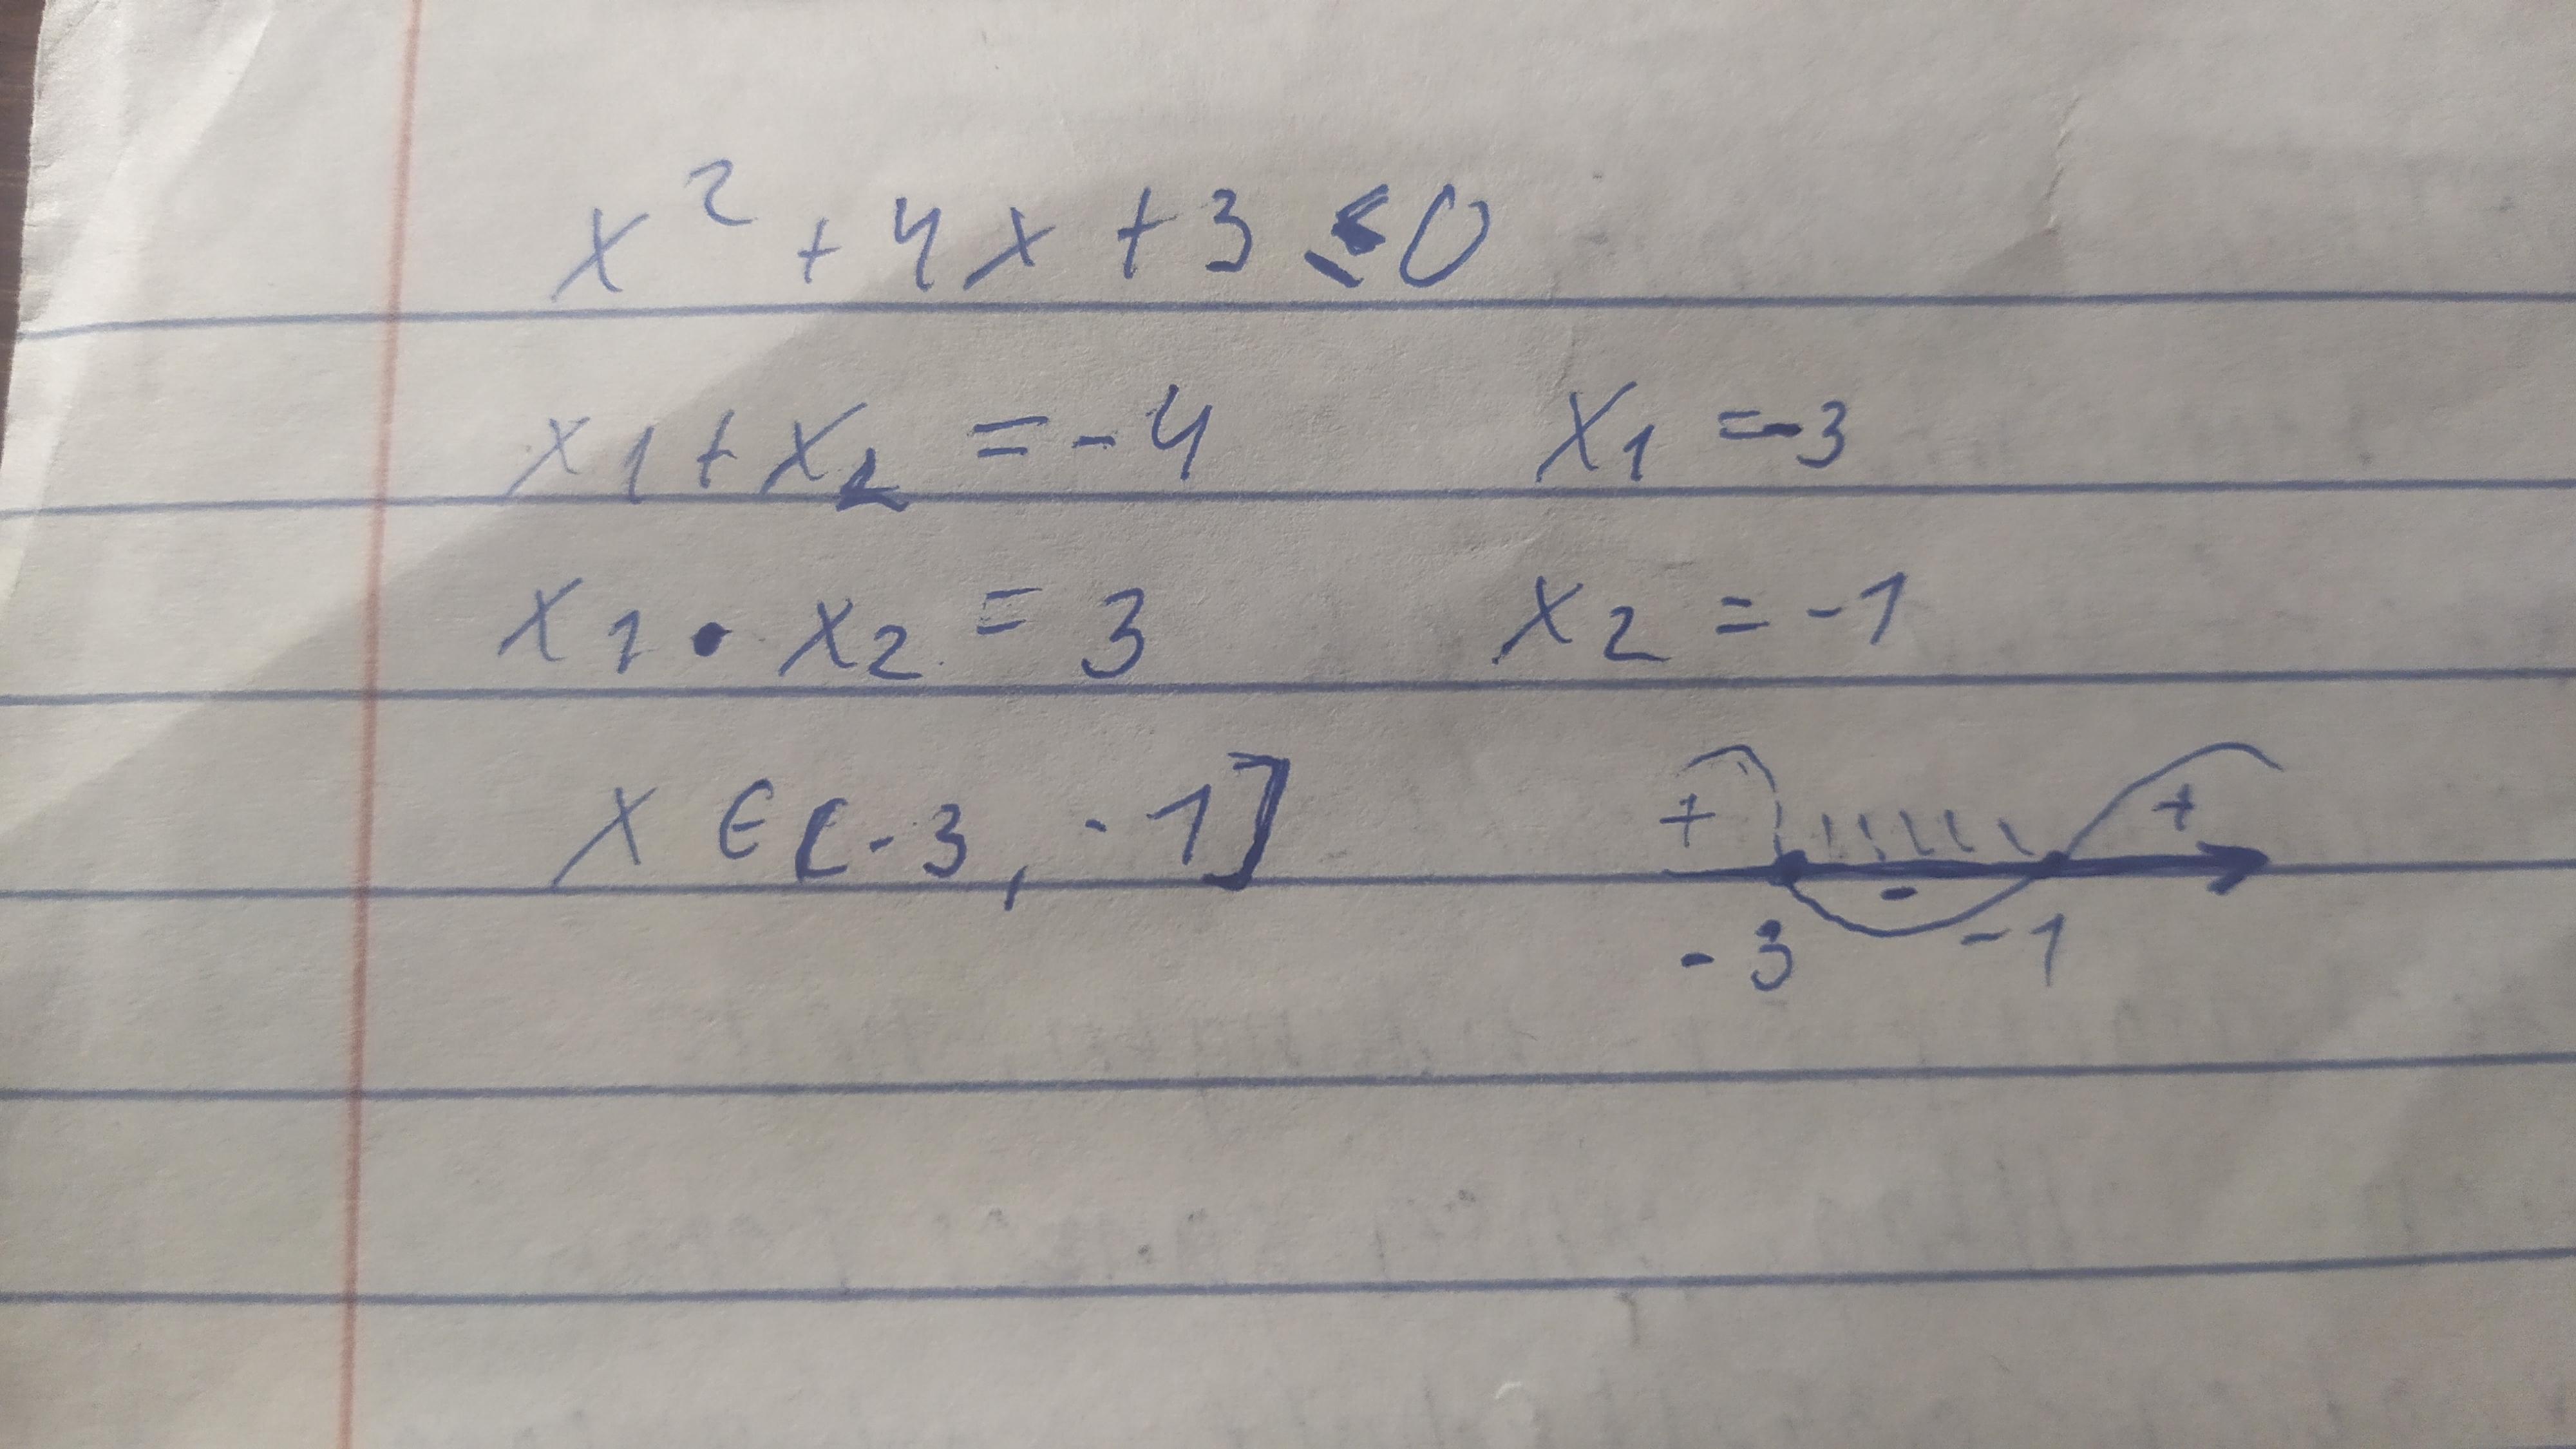 x² + 4x + 3 ≤ 0
x1 + x2 = -4 x1 = -3
x1 • x2 = 3 x2 = -1
x ∈ [-3, -1] + - +
-3 -1